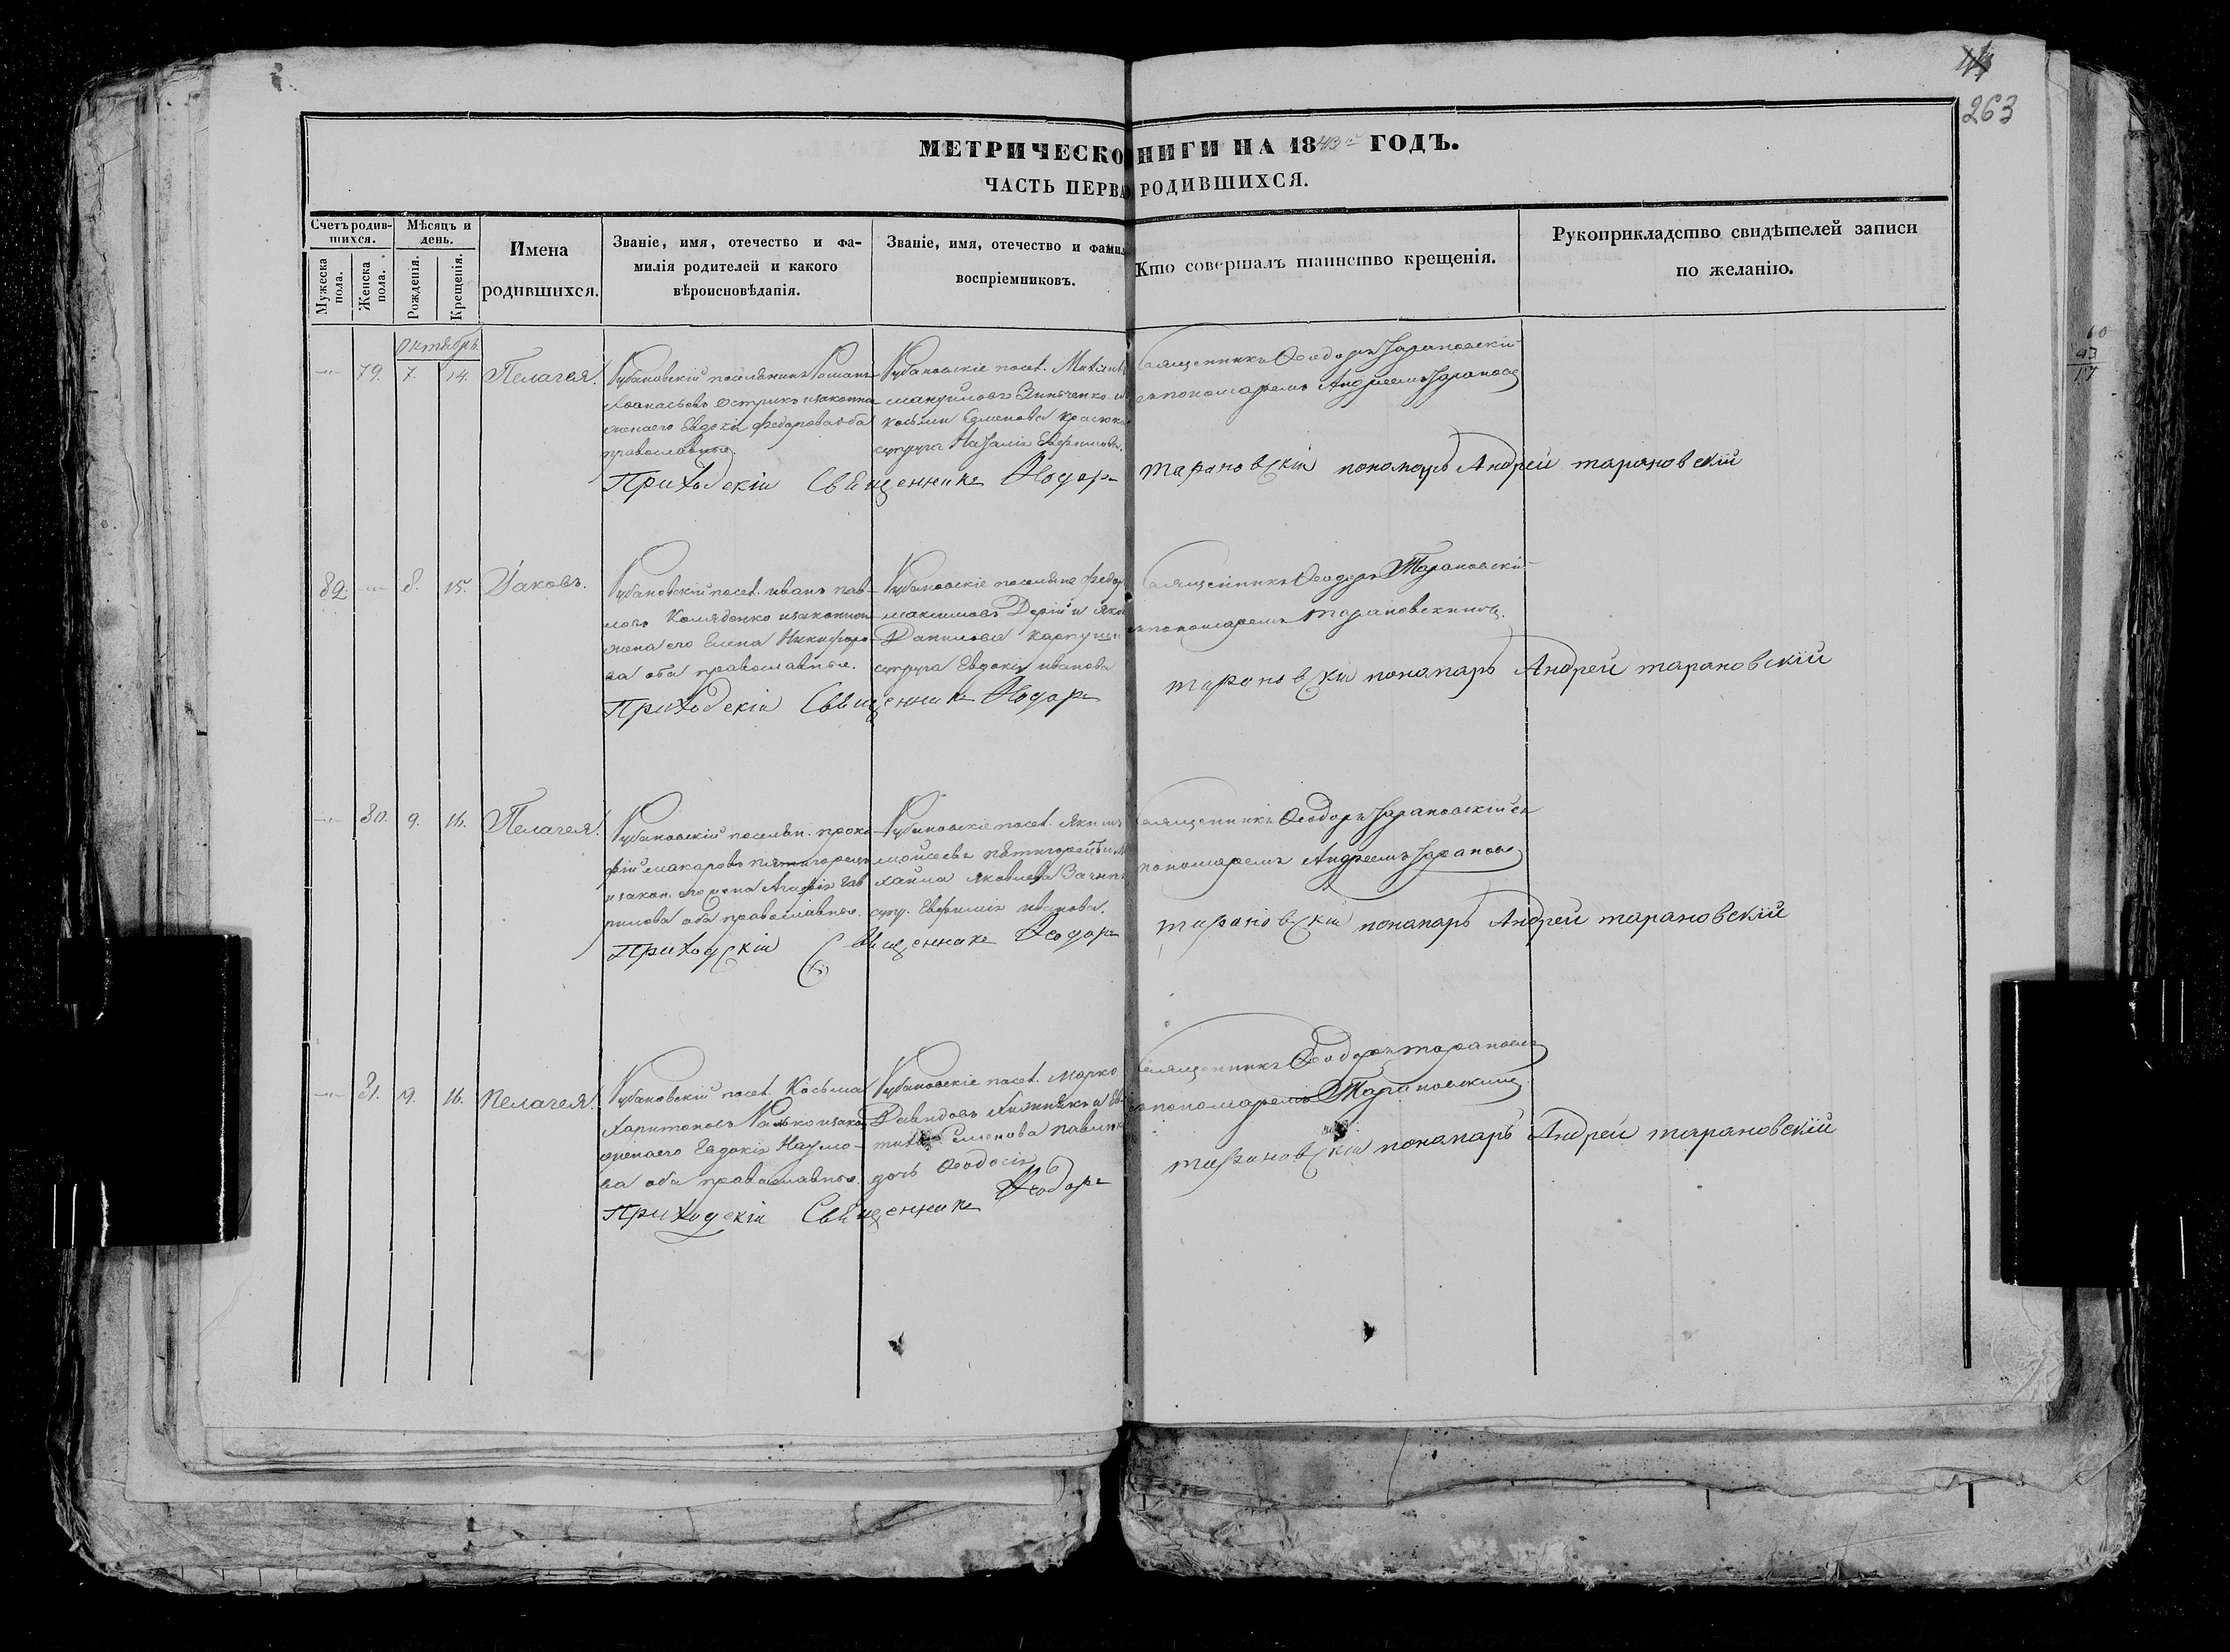 44
263
МЕТРИЧЕСКО НИГИ НА 1843й ГОДЪ.
ЧАСТЬ ПЕРВА РОДИВШИХСЯ.
Счетъ родив-
шихся.
Мужеска пола.
Женска пола.
Мѣсяцъ и
день.
Рожденія.
Крещенія.
Имена
родившихся.
Званіе, имя, отечество и фа-
милія родителей и какого
вѣроисповѣданія.
Званіе, имя, отечество и фамил
воспріемниковъ.
Кто совершалъ таинство крещенія.
Рукоприкладство свидѣтелей записи
по желанію.
октябрь
79. 7. 14. Пелагея.
Рубановскій поселянинъ Романъ
Аѳанасьевъ Острикъ изаконна
женаего Евдокія Федорова оба
православные.
Рубановскіе посел.
мануиловъ Зинченко и
косьми Семенова
супруга Наталія Евфимова.
Священникъ Ѳеодоръ Тарановскій
спономаремъ Андреемъ Таранов
Приходскій Священникъ Ѳеодоръ Тарановскій пономарь Андрей тарановскій
82. 8. 15. Іаковъ.
Рубановскій посел. иванъ пав-
ловъ Коляденко изаконная
жена его Елена Никифоро-
ва оба православные.
Рубановскіе поселяне Федоръ
максимовъ Дерій и
Данилова
супруга Евдокія иванова
Священникъ Ѳеодоръ Тарановскій
спономаремъ Тарановскимъ.
Приходскій Священникъ Ѳеодоръ тарановскій понамарь Андрей тарановскій
80. 9. 16. Пелагея.
Рубановскій поселян. проко-
фій макаровъ пятигорецъ
изакон. его жена Агафія Гав
рилова оба православные.
Рубановскіе посел. Якимъ
моисеевъ пятигорецъ и Ми
хаила яковлева
супр. Евфимія иванова.
Священникъ Ѳеодоръ Тарановскій съ
пономаремъ Андреемъ Таранов
Приходскій Священникъ Ѳеодоръ тарановскій понамарь Андрей тарановскій
81. 9. 16. Пелагея.
Рубановскій посел. Косьма
Харитоновъ изакон
женаего Евдокія Наумо-
ва оба православные.
Рубановскіе посел. Марко
Давидовъ и Ев
Семенова
дочь Ѳеодосія
Священникъ Ѳеодоръ Тарановск
спономаремъ Тарановскимъ
Приходскій Священникъ Ѳеодоръ тарановскій понамарь Андрей тарановскій
60
43
17